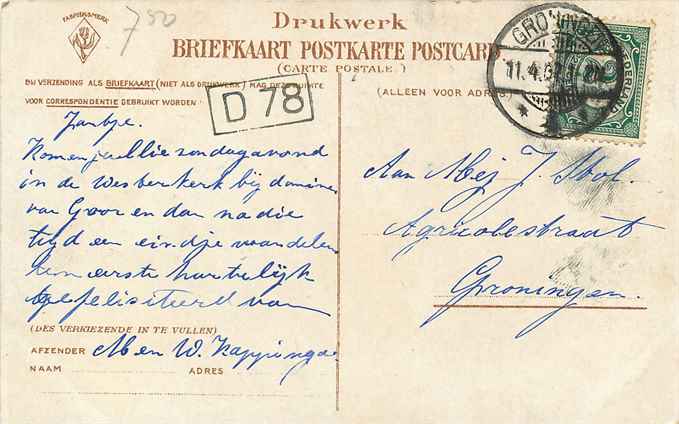 FABRIEKSMERK
750
Drukwerk
BRIEFKAART POSTKARTE POSTCARD
(CARTE POSTALE.)
BIJ VERZENDING ALS BRIEFKAART (NIET ALS DRUKWERK) MAG DEZE RUIMTE
VOOR CORRESPONDENTIE GEBRUIKT WORDEN
(ALLEEN VOOR ADRES
D 78
GRONINGEN
11.4.
NEDERLAND
Jantje.
Komen jullie zondagavond
in de Westerkerk bij dominee
van Goor en dan na die
tijd een eindje wandelen
ten eerste hartelijk
gefelisiteerd van
(DES VERKIEZENDE IN TE VULLEN)
AFZENDER M en W. Kappinga
NAAM ADRES
Aan Mej J. Stol.
Agricolastraat
Groningen.